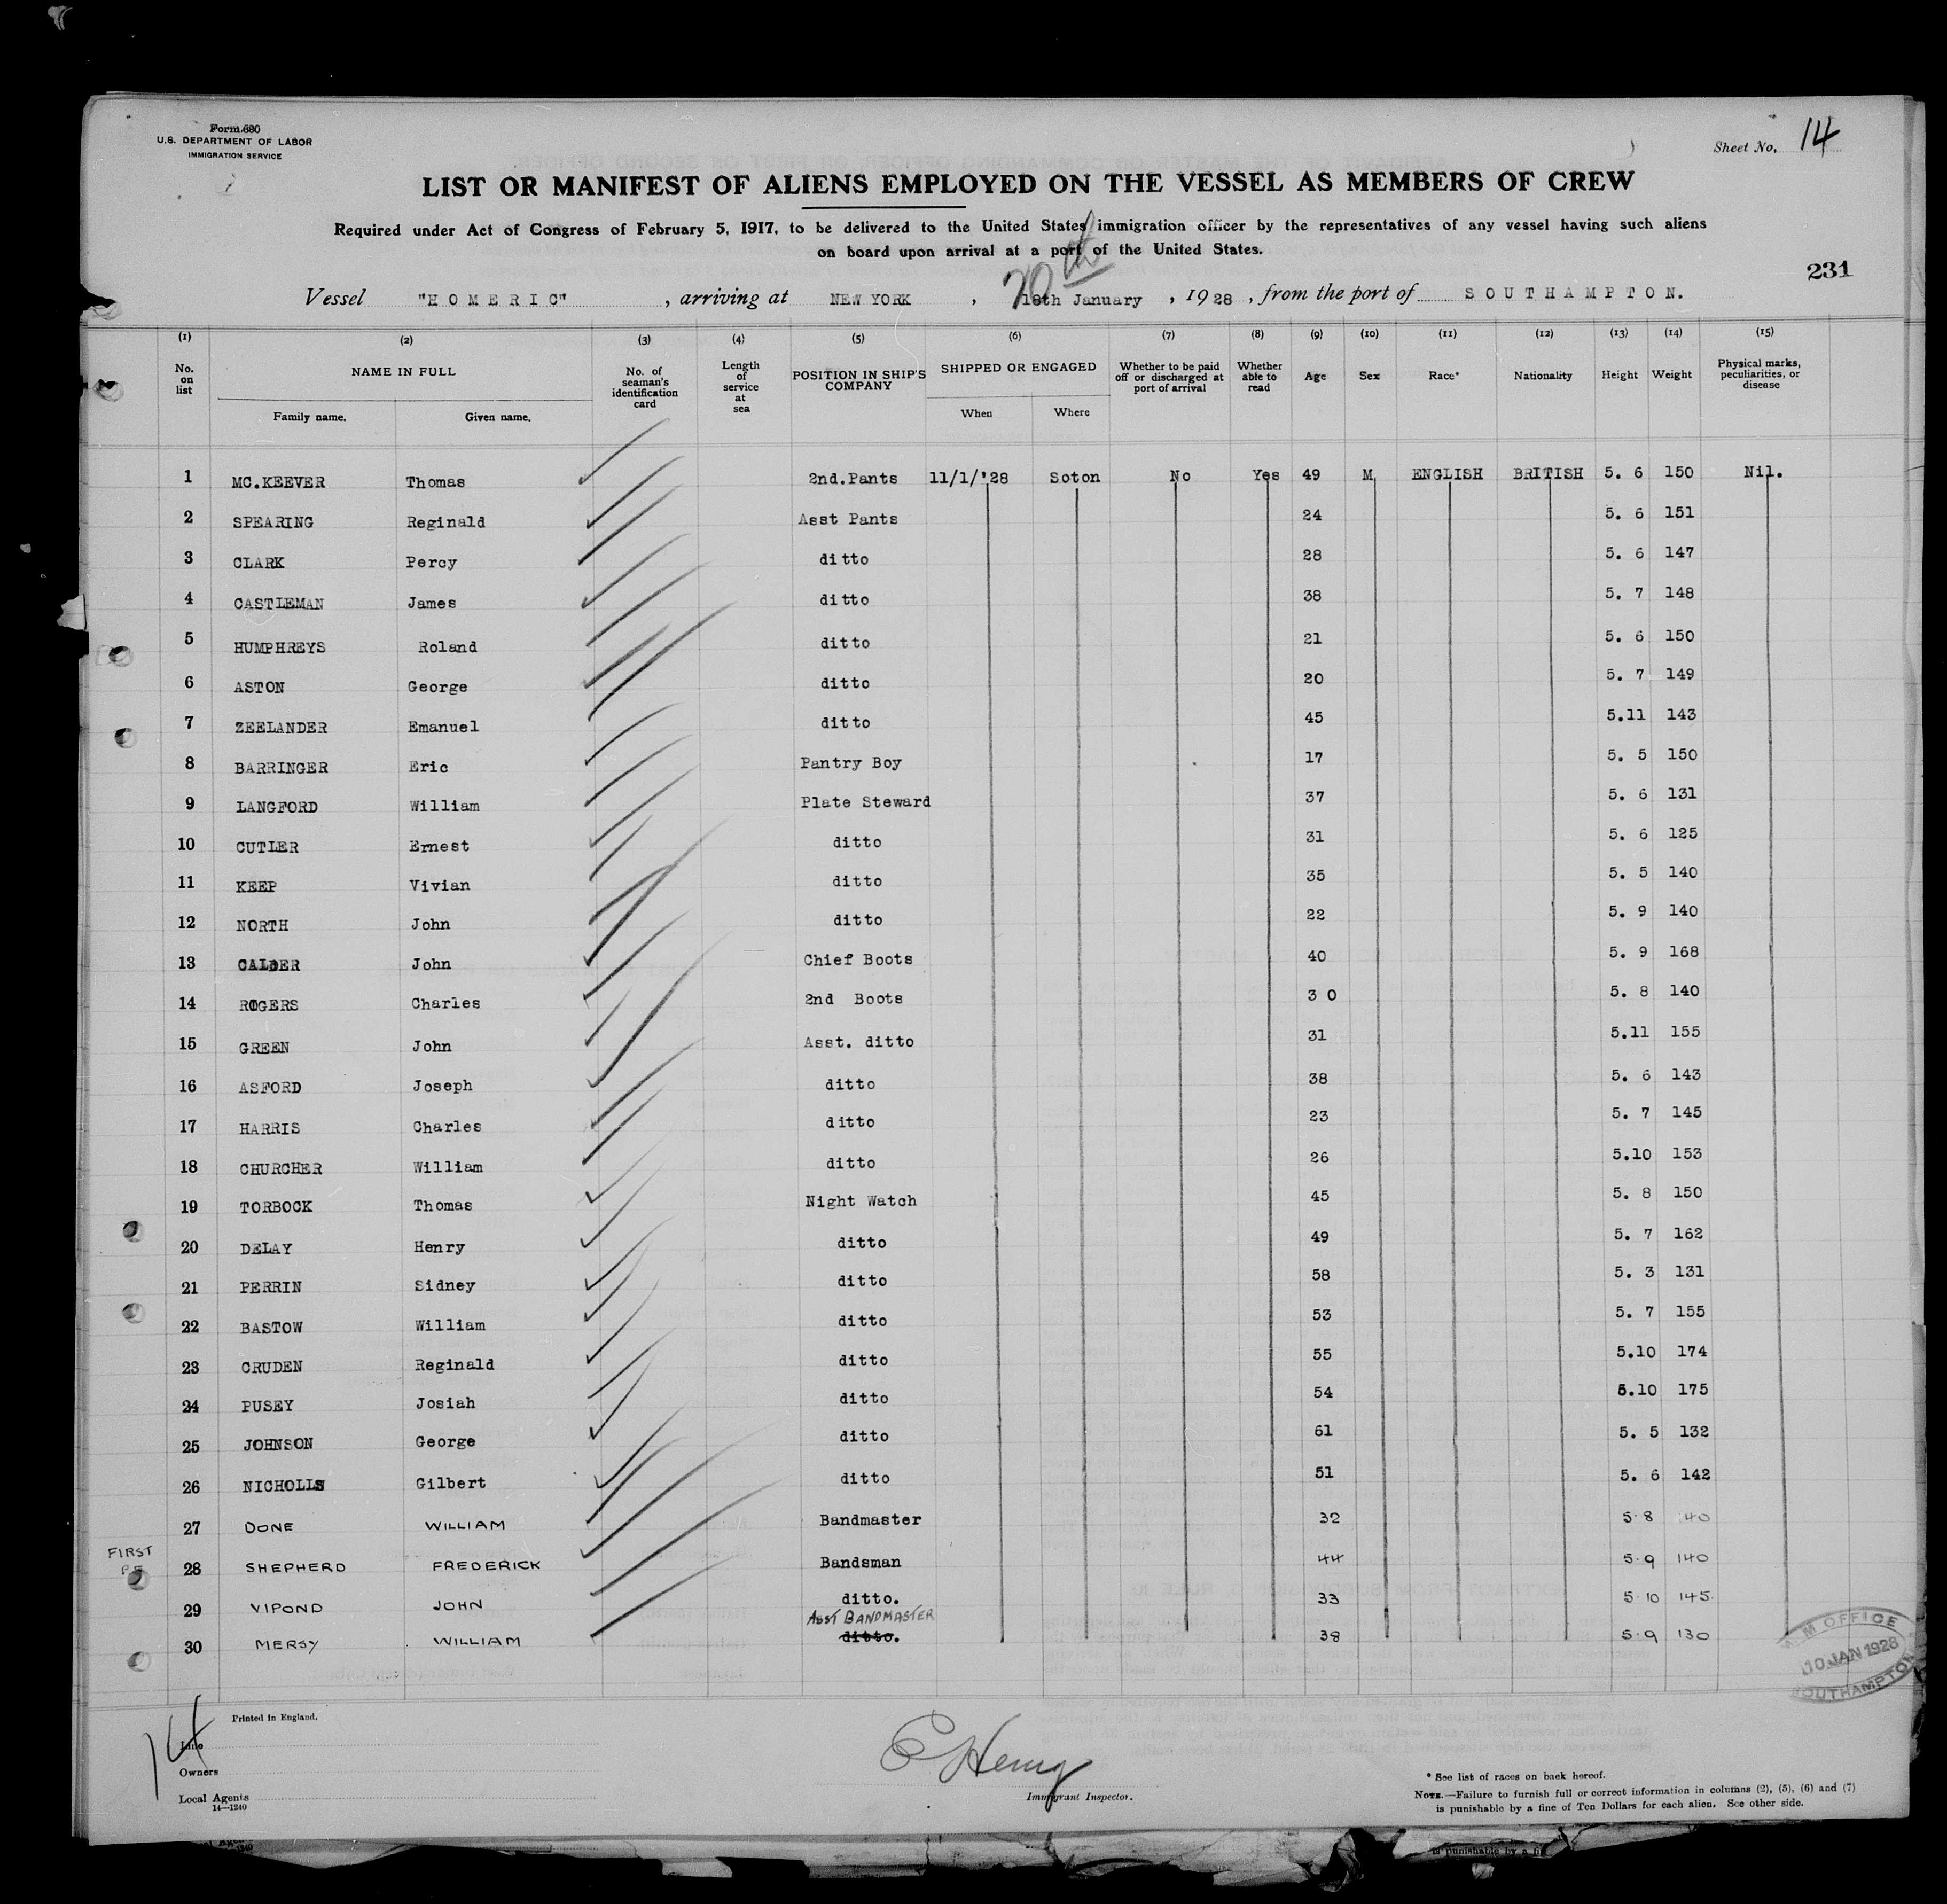 Form 680
U.S. DEPARTMENT OF LABOR
IMMIGRATION SERVICE
Sheet No. 14
LIST OR MANIFEST OF ALIENS EMPLOYED ON THE VESSEL AS MEMBERS OF CREW
Required under Act of Congress of February 5, 1917, to be delivered to the United States immigration officer by the representatives of any vessel having such aliens
on board upon arrival at a port of the United States.
231
20th
Vessel "HOMERIC", arriving at NEW YORK, 18th January, 1928, from the port of SOUTHAMPTON.
(1) (2) (3) (4) (5) (6) (7) (8) (9) (10) (11) (12) (13) (14) (15)
No. on list NAME IN FULL Family name. Given name. No. of seaman's identification card Length of service at sea POSITION IN SHIP'S COMPANY SHIPPED OR ENGAGED When Where Whether to be paid off or discharged at port of arrival Whether able to read Age Sex Race* Nationality Height Weight Physical marks, peculiarities, or disease
1 MC.KEEVER Thomas 2nd.Pants 11/1/'28 Soton No Yes 49 M ENGLISH BRITISH 5. 6 150 Nil.
2 SPEARING Reginald Asst Pants 24 5. 6 151
3 CLARK Percy ditto 28 5. 6 147
4 CASTLEMAN James ditto 38 5. 7 148
5 HUMPHREYS Roland ditto 21 5. 6 150
6 ASTON George ditto 20 5. 7 149
7 ZEELANDER Emanuel ditto 45 5.11 143
8 BARRINGER Eric Pantry Boy 17 5. 5 150
9 LANGFORD William Plate Steward 37 5. 6 131
10 CUTLER Ernest ditto 31 5. 6 125
11 KEEP Vivian ditto 35 5. 5 140
12 NORTH John ditto 22 5. 9 140
13 CALDER John Chief Boots 40 5. 9 168
14 ROGERS Charles 2nd Boots 3 0 5. 8 140
15 GREEN John Asst. ditto 31 5.11 155
16 ASFORD Joseph ditto 38 5. 6 143
17 HARRIS Charles ditto 23 5. 7 145
18 CHURCHER William ditto 26 5.10 153
19 TORBOCK Thomas Night Watch 45 5. 8 150
20 DELAY Henry ditto 49 5. 7 162
21 PERRIN Sidney ditto 58 5. 3 131
22 BASTOW William ditto 53 5. 7 155
23 CRUDEN Reginald ditto 55 5.10 174
24 PUSEY Josiah ditto 54 5.10 175
25 JOHNSON George ditto 61 5. 5 132
26 NICHOLLS Gilbert ditto 51 5. 6 142
27 DONE WILLIAM Bandmaster 32 5·8 140
FIRST
28 SHEPHERD FREDERICK Bandsman 44 5·9 140
29 VIPOND JOHN ditto. 33 5·10 145.
ASST BANDMASTER
30 MERSY WILLIAM ditto. 38 5·9 130
10 JAN 1928
SOUTHAMPTON
Printed in England.
14
Line
Owners
Local Agents
14—1240
Immigrant Inspector.
* See list of races on back hereof.
NOTE.—Failure to furnish full or correct information in columns (2), (5), (6) and (7)
is punishable by a fine of Ten Dollars for each alien. See other side.